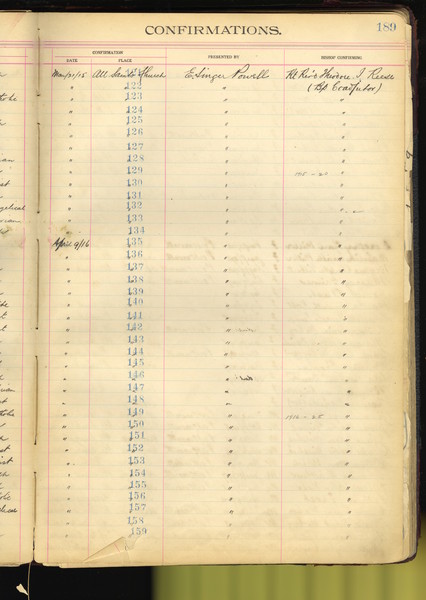 189
CONFIRMATIONS.
CONFIRMATION
DATE PLACE PRESENTED BY BISHOP CONFIRMING
Mar/21/15 All Saints Church E. Singer Powell Rt Rev. Theodore I. Reese
" 122 " (Bp Coadjutor)
" 123 " "
" 124 " "
" 125 " "
" 126 " "
" 127 " "
" 128 " "
" 129 " 1915 - 20 "
" 130 " "
" 131 " "
" 132 " "
" 133 " "
" 134 " "
April 9/16 135 " "
" 136 " "
" 137 " "
" 138 " "
" 139 " "
" 140 " "
" 141 " "
" 142 " "
" 143 " "
" 144 " "
" 145 " "
" 146 " "
" 147 " "
" 148 " "
" 149 " 1916 - 25 "
" 150 " "
" 151 " "
" 152 " "
" 153 " "
" 154 " "
" 155 " "
" 156 " "
" 157 " "
" 158 " "
" 159 " "